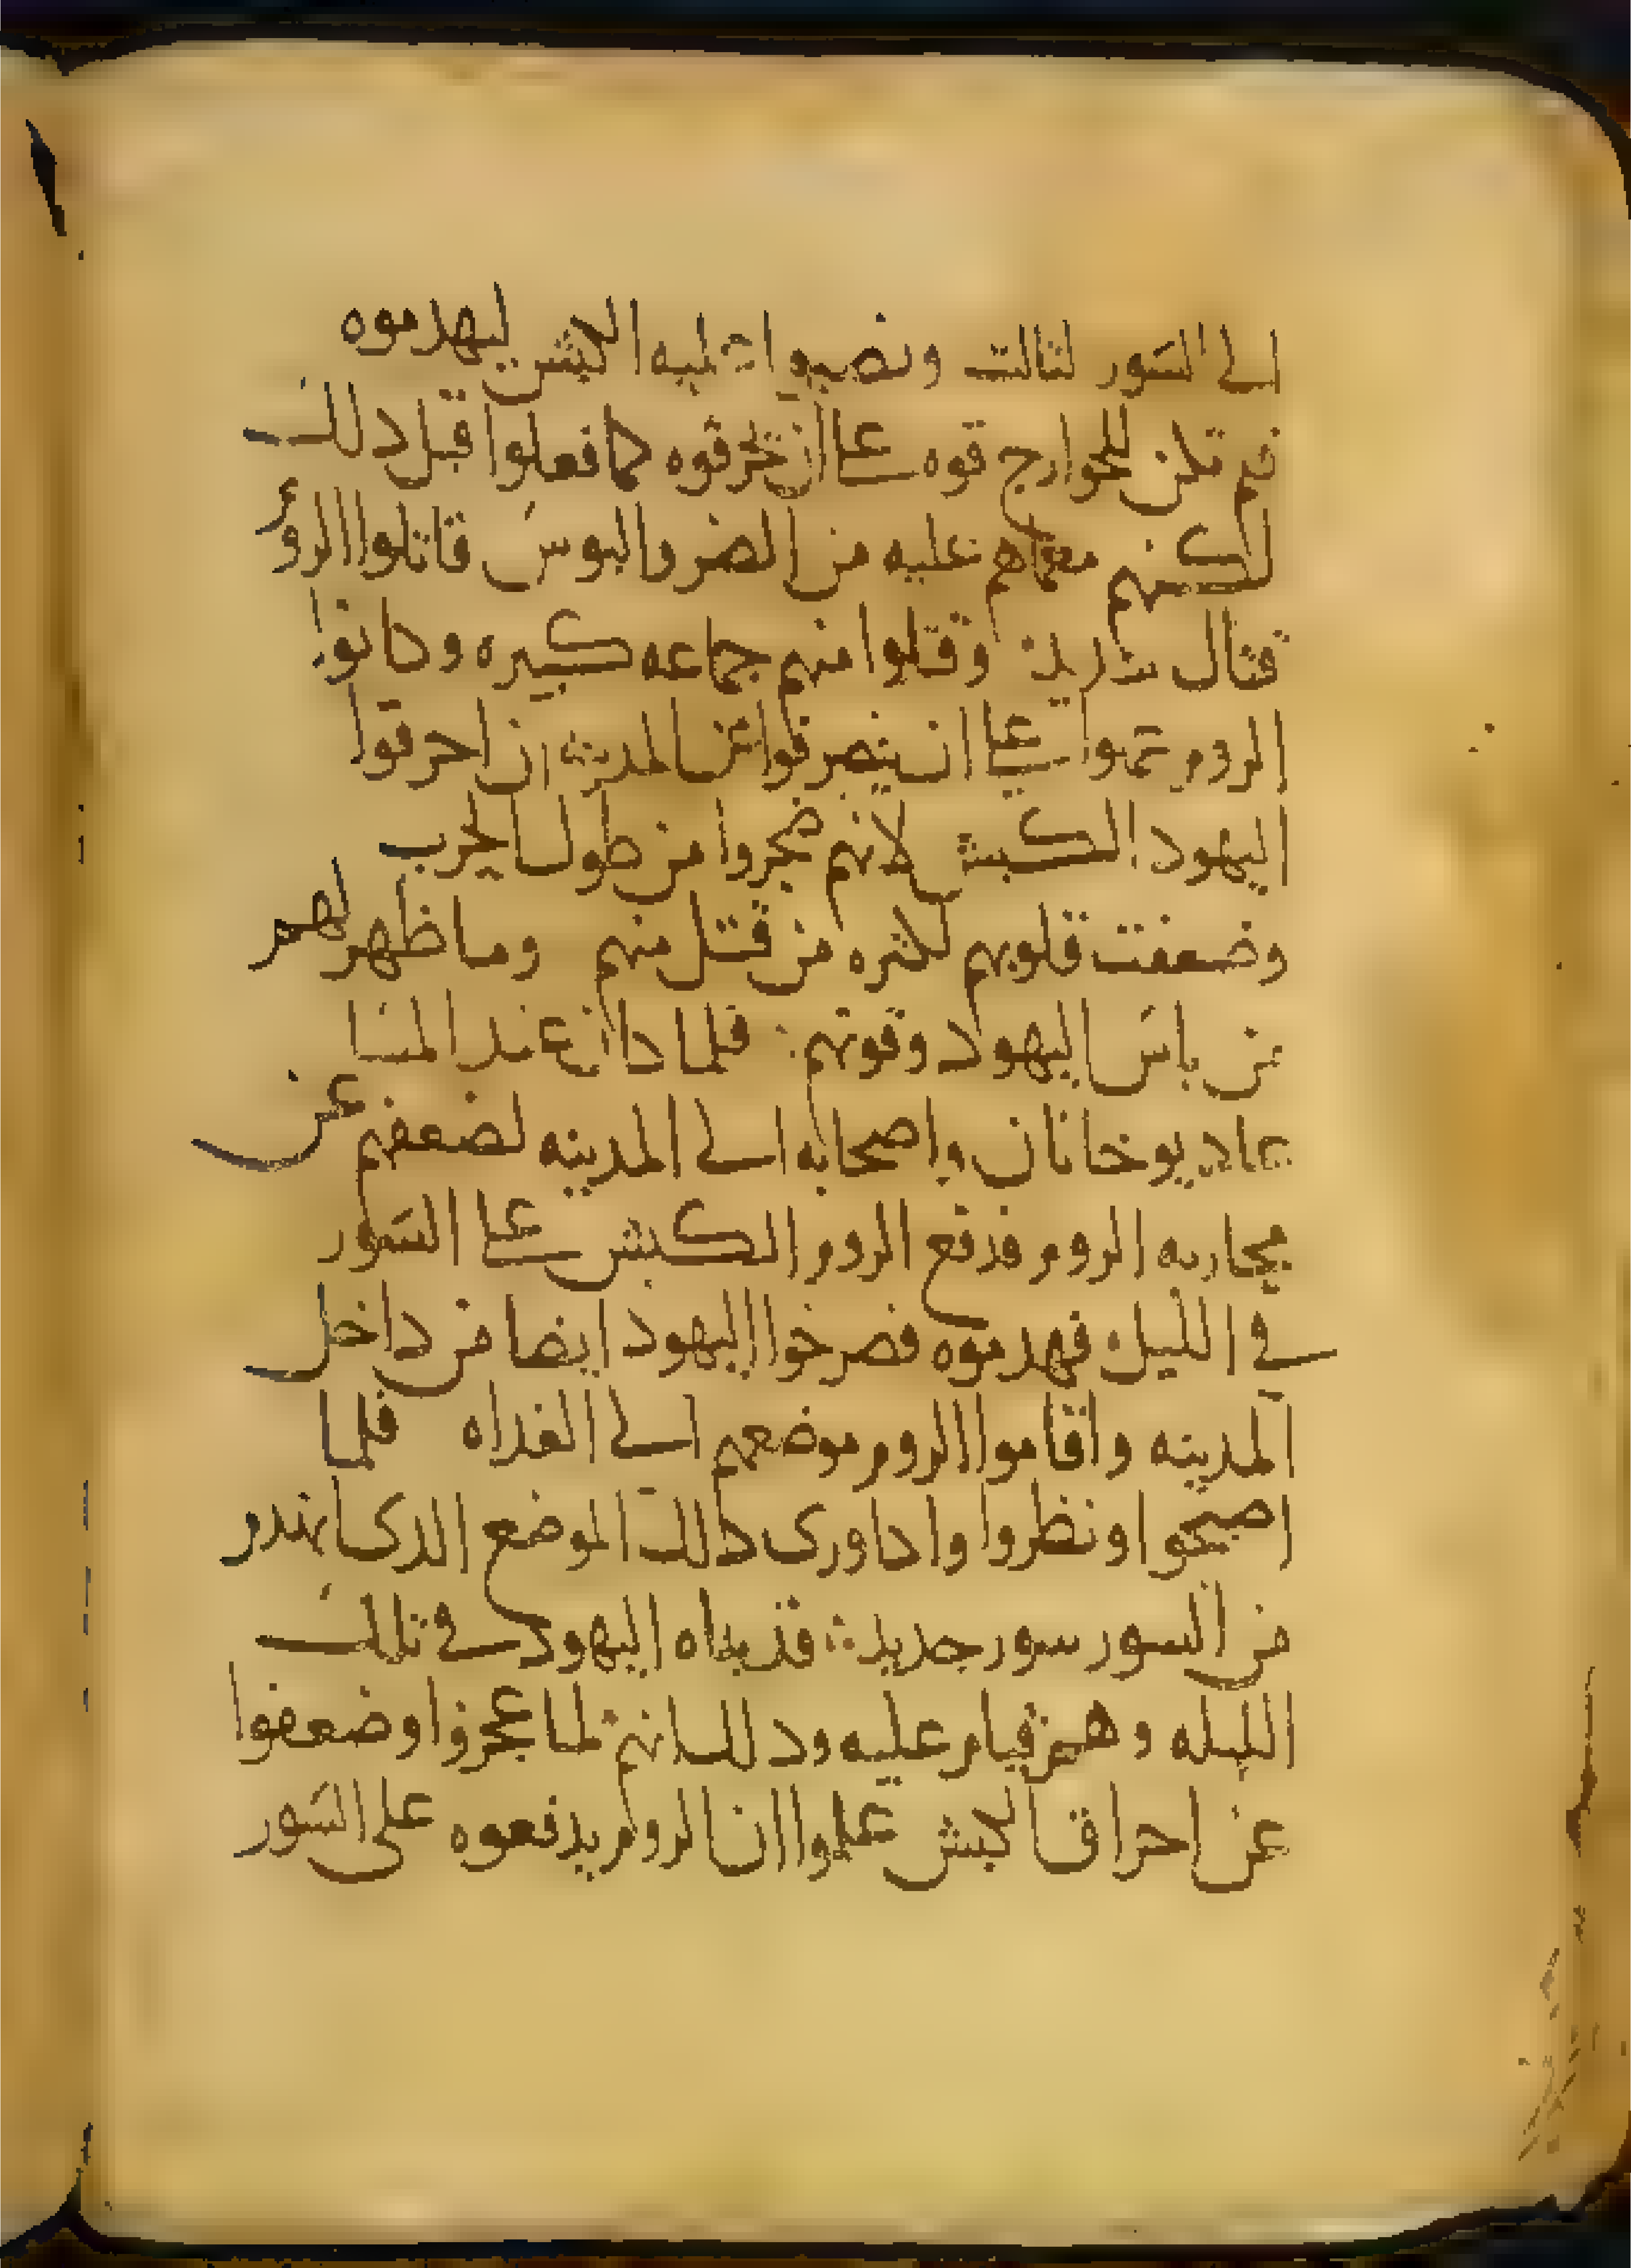 الى السور لثالث ونصبوا عليه الكبش ليهدموه
فلم تكن للخوارج قوه على ان تحرقوه كما فعلوا قبل دلك
لكنهم معما هم عليه من الضر والبوس قاتلوا الروم
قتال شديد وقتلوا منهم جماعه كبيره وكانوا
الروم تموا على ان ينصرفوا عن المدينه ان احرقوا
اليهود الكبش لانهم ضجروا من طول الحرب
وضعفت قلوبهم لكثره من قتل منهم وما ظهر لهم
من باس اليهود وقوتهم فلما كان عند المسا
عاد يوخانان واصحابه الى المدينه لضعفهم عن
محاربه الروم فدفع الروم الكبش على السور
في الليل فهدموه فصرخوا اليهود ايضا من داخل
المدينه واقاموا الروم موضعهم الى الغداه فلما
اصبحوا ونظروا وادا ورى دالك الموضع الدى انهدم
من السور سور جديد قد بناه اليهود في تلك
الليله وهم قيام عليه ودلك انهم لما عجزوا وضعفوا
عن احراق الكبش علموا ان الروم يدفعوه على السور